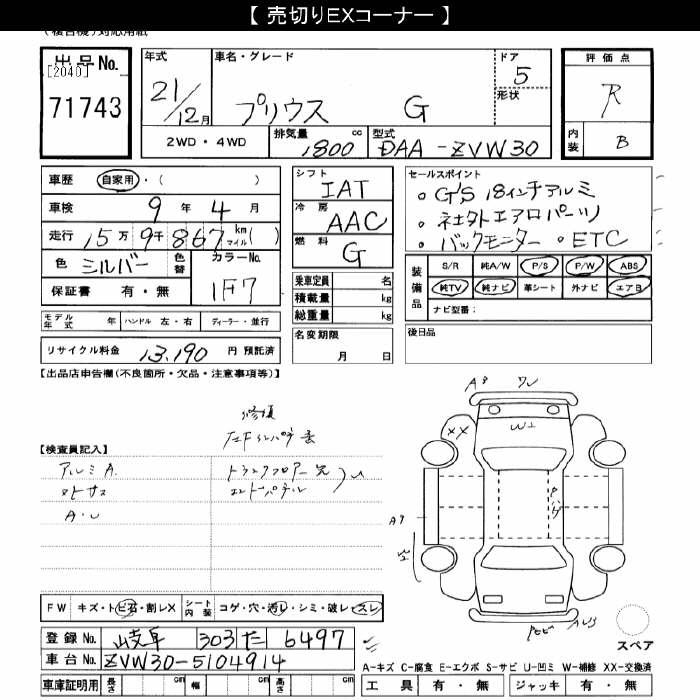 【 売切りEXコーナー 】
(複合機)対応用紙
出品No. [2040] 71743
年式 21/12月
車名・グレード プリウス G
ドア 5
形状
評価点 R
内装 B
2WD・4WD
排気量 1800 cc
型式 DAA-ZVW30
車歴 自家用・( )
車検 9年 4月
走行 15万9千867 km マイル ( )
色 シルバー 色替
カラーNo. 1F7
保証書 有・無
シフト IAT
冷房 AAC
燃料 G
乗車定員 名
積載量 kg
総重量 kg
セールスポイント
・G'S 18インチアルミ
・ネ土外エアロパーツ
・バックモニター ・ETC
装備品 S/R 純A/W P/S P/W ABS
純TV 純ナビ 革シート 外ナビ エアB
ナビ型番:
モデル年式 年 ハンドル 左・右 ディーラー・並行
名変期限 月 日
後日品
リサイクル料金 13,190 円 預託済
【出品店申告欄(不良箇所・欠品・注意事項等)】
修復
【検査員記入】
アルミA.
トランクフロアー
エンドパネル
A・U
A8 W
XX
WU
A9
FW キズ・トビ石・割レX シート内装 コゲ・穴・汚レ・シミ・破レ・スレ
登録No. 岐阜 303 た 6497
車台No. ZVW30-5104914
車庫証明用 長さ cm 幅 cm 高さ cm
スペア
A-キズ C-腐食 E-エクボ S-サビ U-凹ミ W-補修 XX-交換済
工具 有・無 ジャッキ 有・無